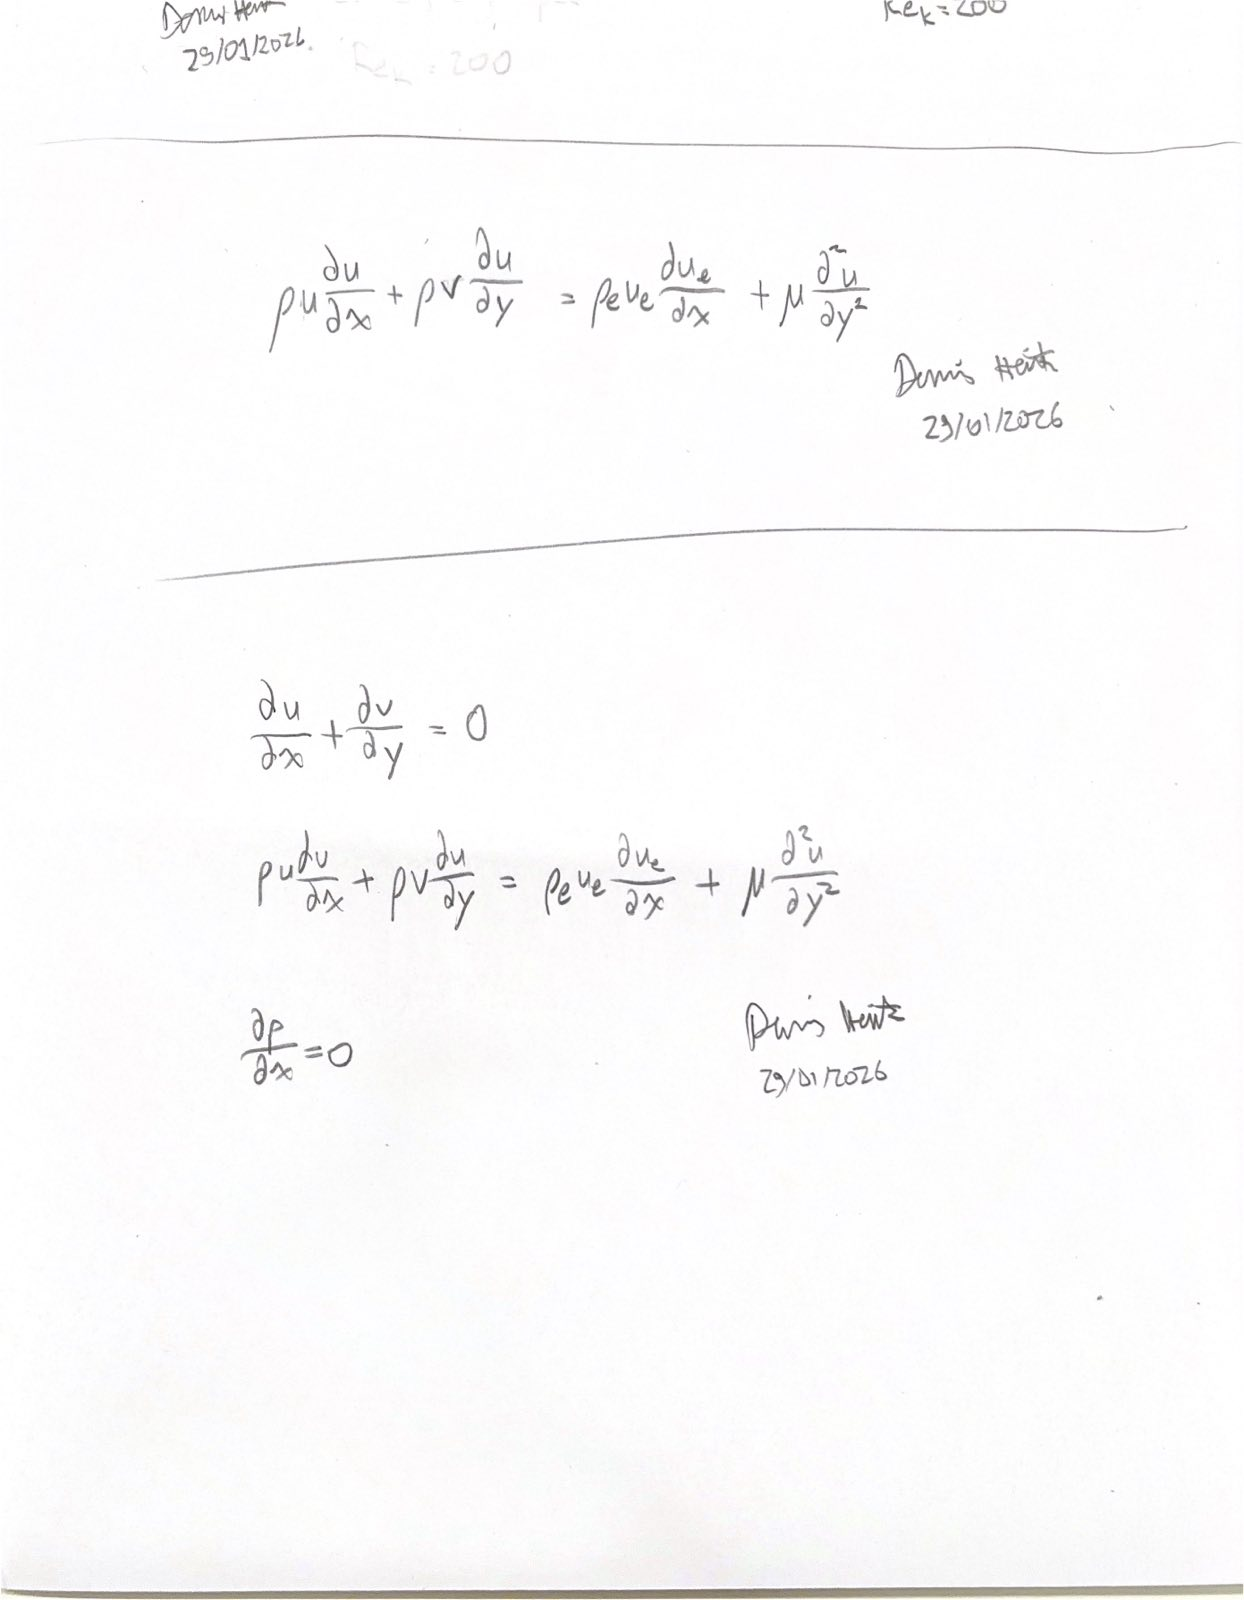 Re_k = 200
29/01/2026.
Re_k = 200
ρu ∂u/∂x + ρv ∂u/∂y = ρ_e u_e ∂u_e/∂x + μ ∂²u/∂y²
Denis Heitz
29/01/2026
∂u/∂x + ∂v/∂y = 0
ρu ∂u/∂x + ρv ∂u/∂y = ρ_e u_e ∂u_e/∂x + μ ∂²u/∂y²
∂p/∂x = 0
Denis Heitz
29/01/2026